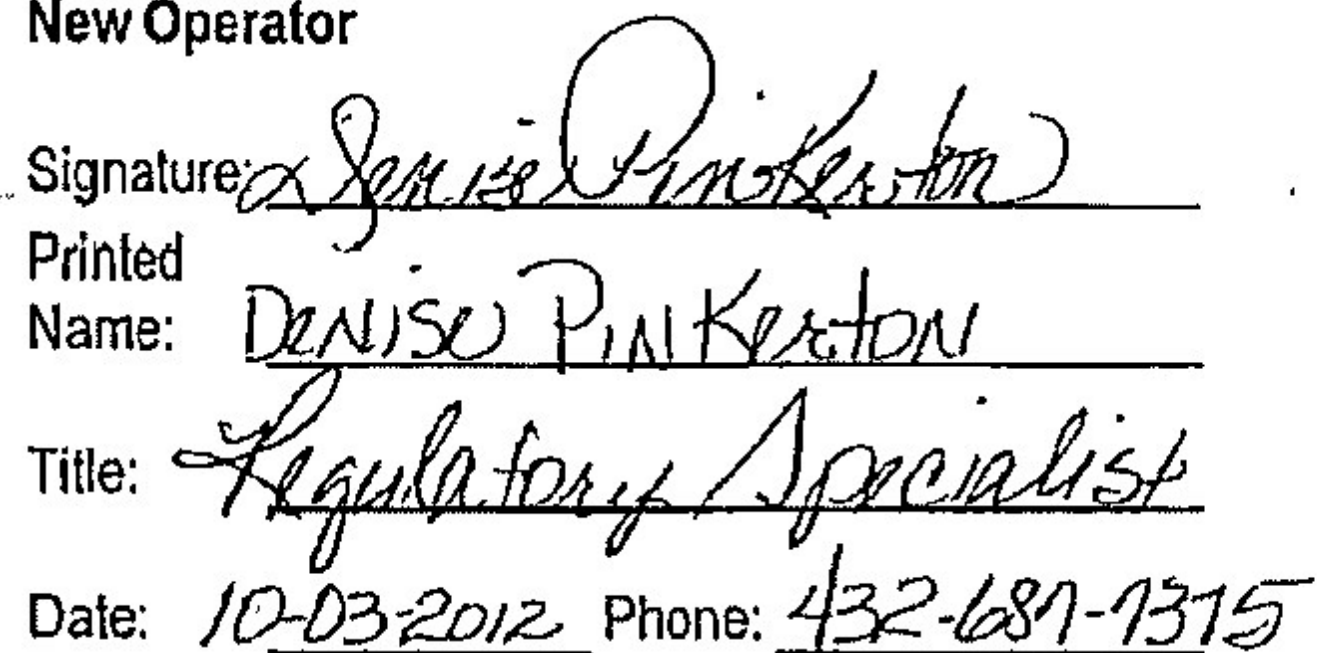 New Operator
Signature: Denise Pinkerton
Printed
Name: Denise Pinkerton
Title: Regulatory Specialist
Date: 10-03-2012 Phone: 432-687-7375